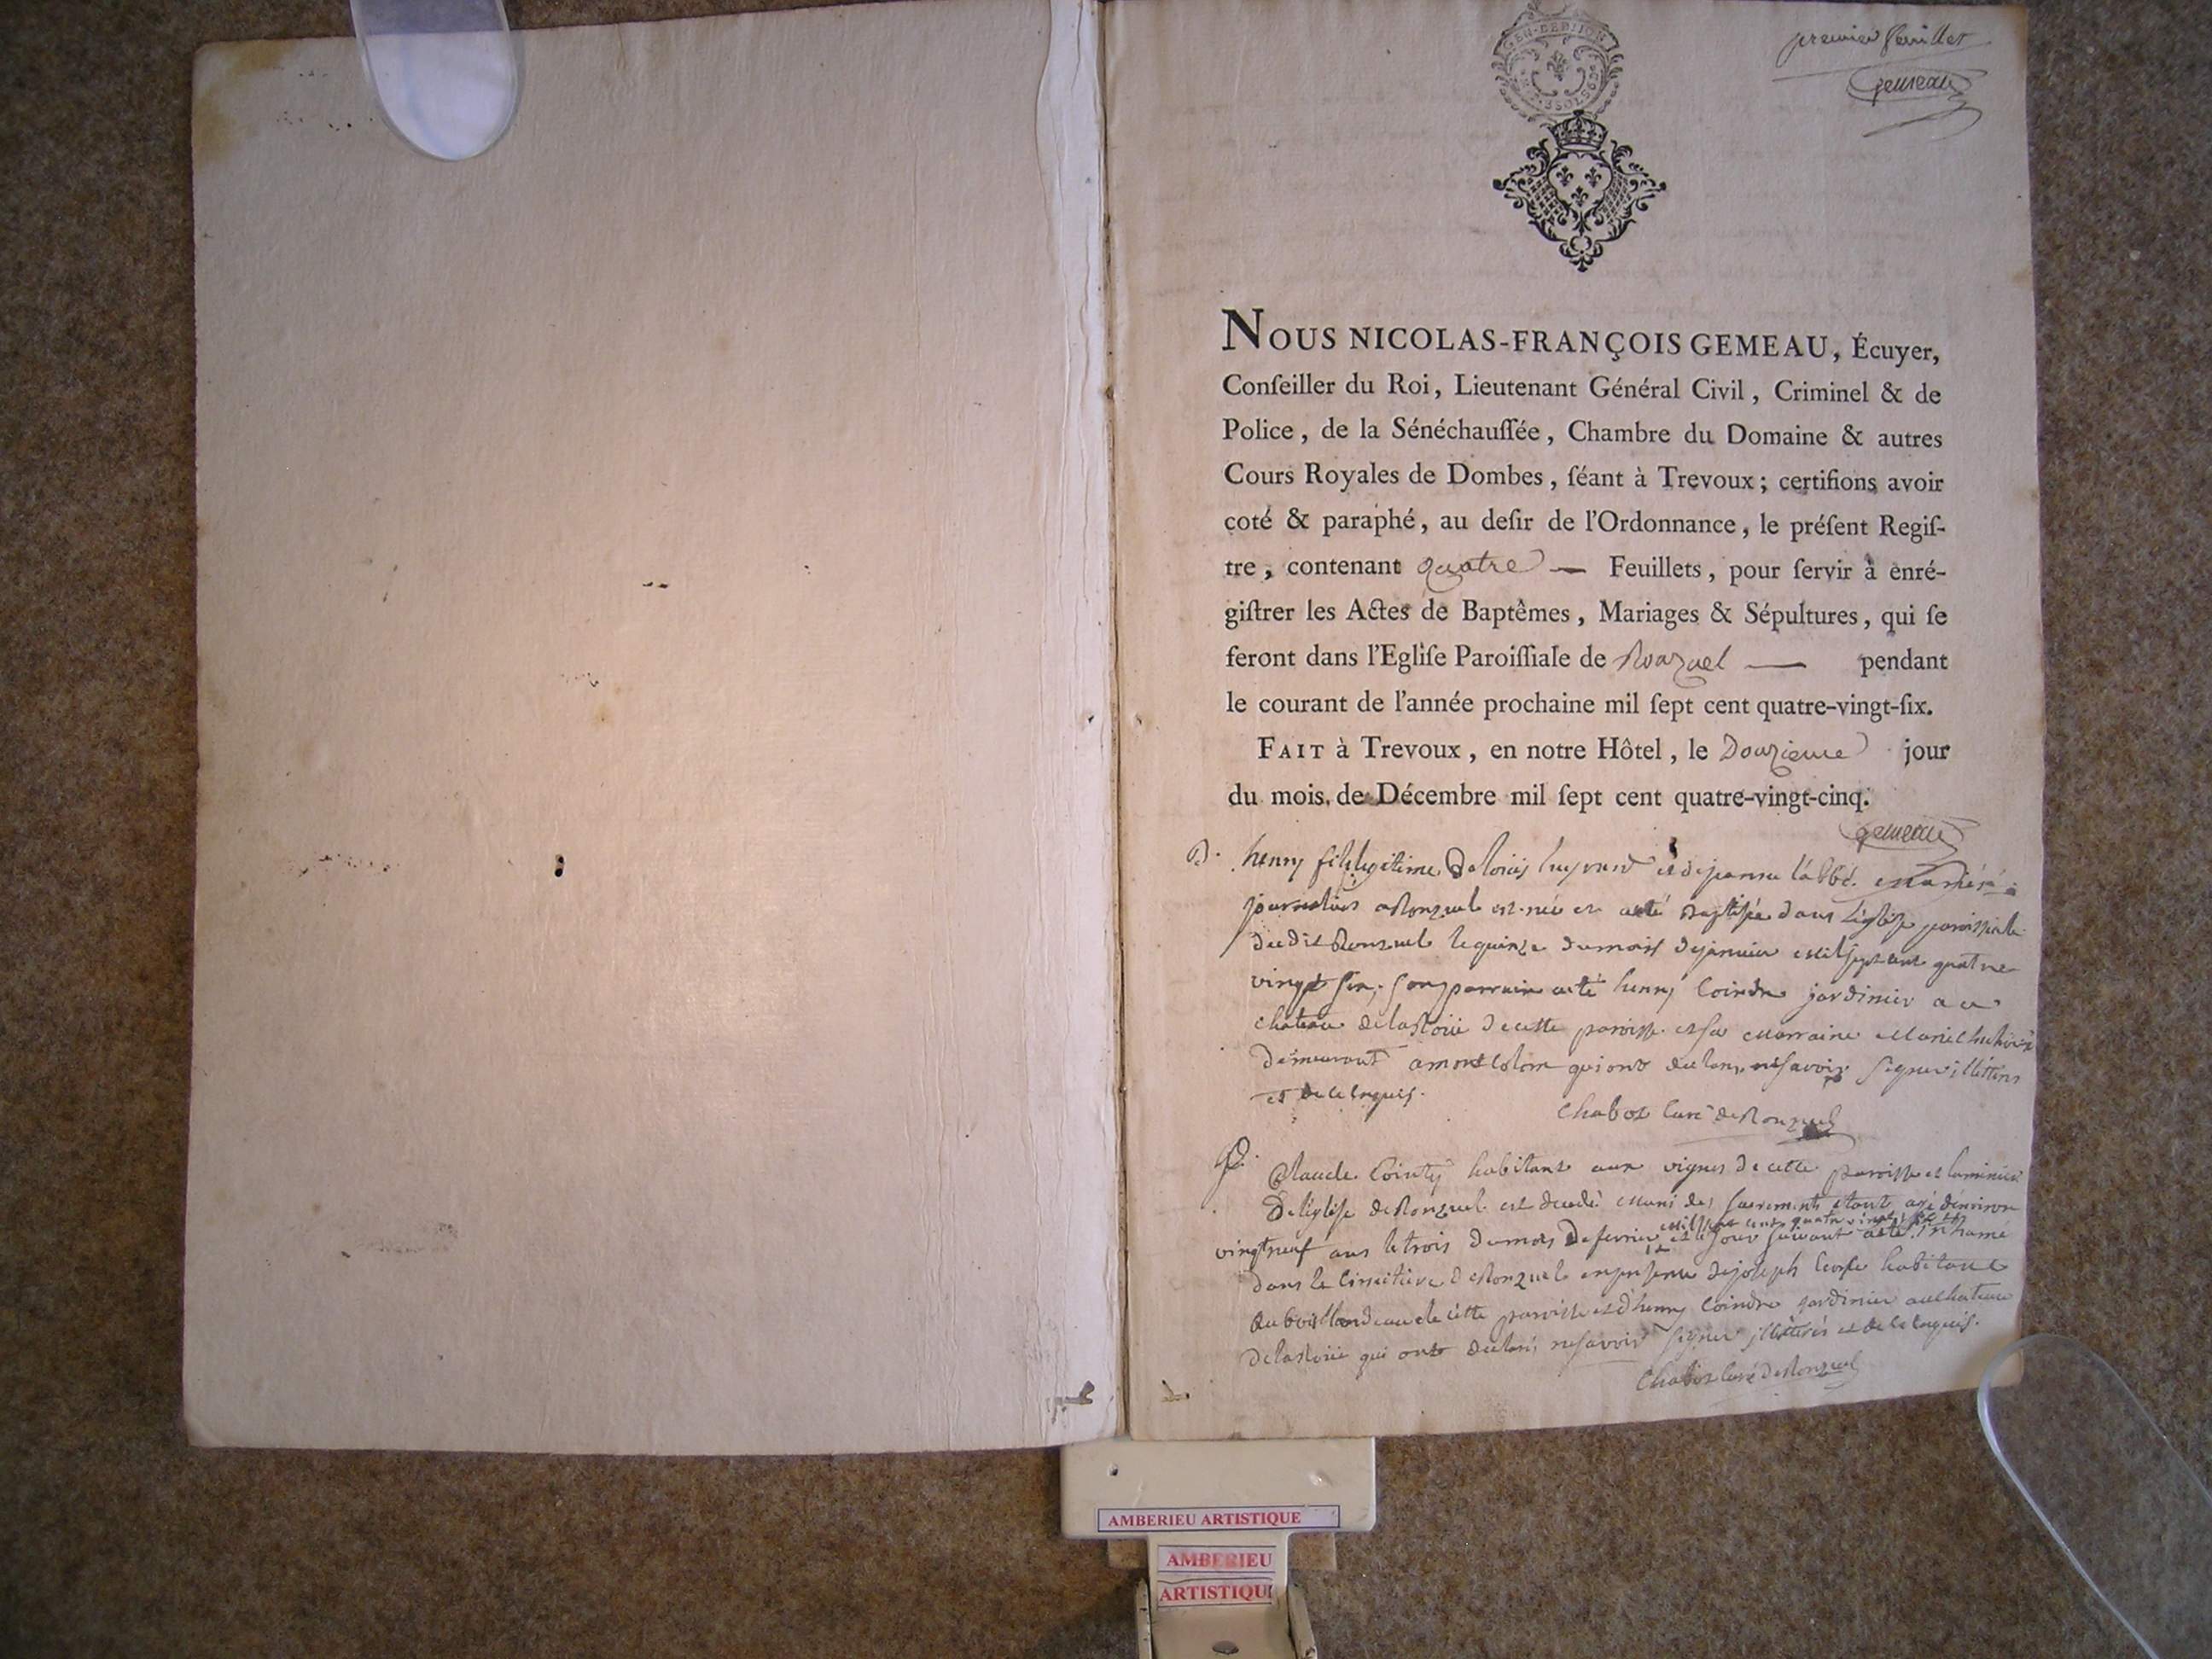 GEN. DE DIJON
premier feuillet
Gemeau
NOUS NICOLAS-FRANÇOIS GEMEAU, Écuyer,
Conſeiller du Roi, Lieutenant Général Civil, Criminel & de
Police, de la Sénéchauſſée, Chambre du Domaine & autres
Cours Royales de Dombes, ſéant à Trevoux; certifions avoir
coté & paraphé, au deſir de l'Ordonnance, le préſent Regiſ-
tre, contenant quatre — Feuillets, pour ſervir à enré-
giſtrer les Actes de Baptêmes, Mariages & Sépultures, qui ſe
feront dans l'Egliſe Paroiſſiale de Ronzuel — pendant
le courant de l'année prochaine mil ſept cent quatre-vingt-ſix.
FAIT à Trevoux, en notre Hôtel, le Douzieme jour
du mois de Décembre mil ſept cent quatre-vingt-cinq.
Gemeau
B. henry fils legitime De loüis et de jeanne labbé mariés
journaliers a Ronzuel est né et a eté Baptisé dans L'église paroissiale
du dit Ronzuel le quinze du mois de janvier mil sept cent quatre
vingt six, son parrain a eté henry Cointre jardinier a ce
chateau de la Roüe de cette paroisse et sa marraine Marie
demeurant a qui ont declaré ne savoir signer illitérés
et de ce enquis.
Chabot Curé de Ronzuel
Claude Cointy habitant aux vignes de cette paroisse et luminier
De l'église de Ronzuel est decedé muni des sacrements etant agé d'environ
mil sept cent quatre vingt six
vingt neuf ans le trois du mois De fevrier et le jour suivant a eté inhumé
dans le Cimetière de Ronzuel en presence de joseph habitant
au bois de cette paroisse et d'henry Cointre jardinier au chateau
de la Roüe qui ont declaré ne savoir signer illitérés et de ce enquis.
Chabot Curé de Ronzuel
AMBERIEU ARTISTIQUE
AMBERIEU
ARTISTIQU